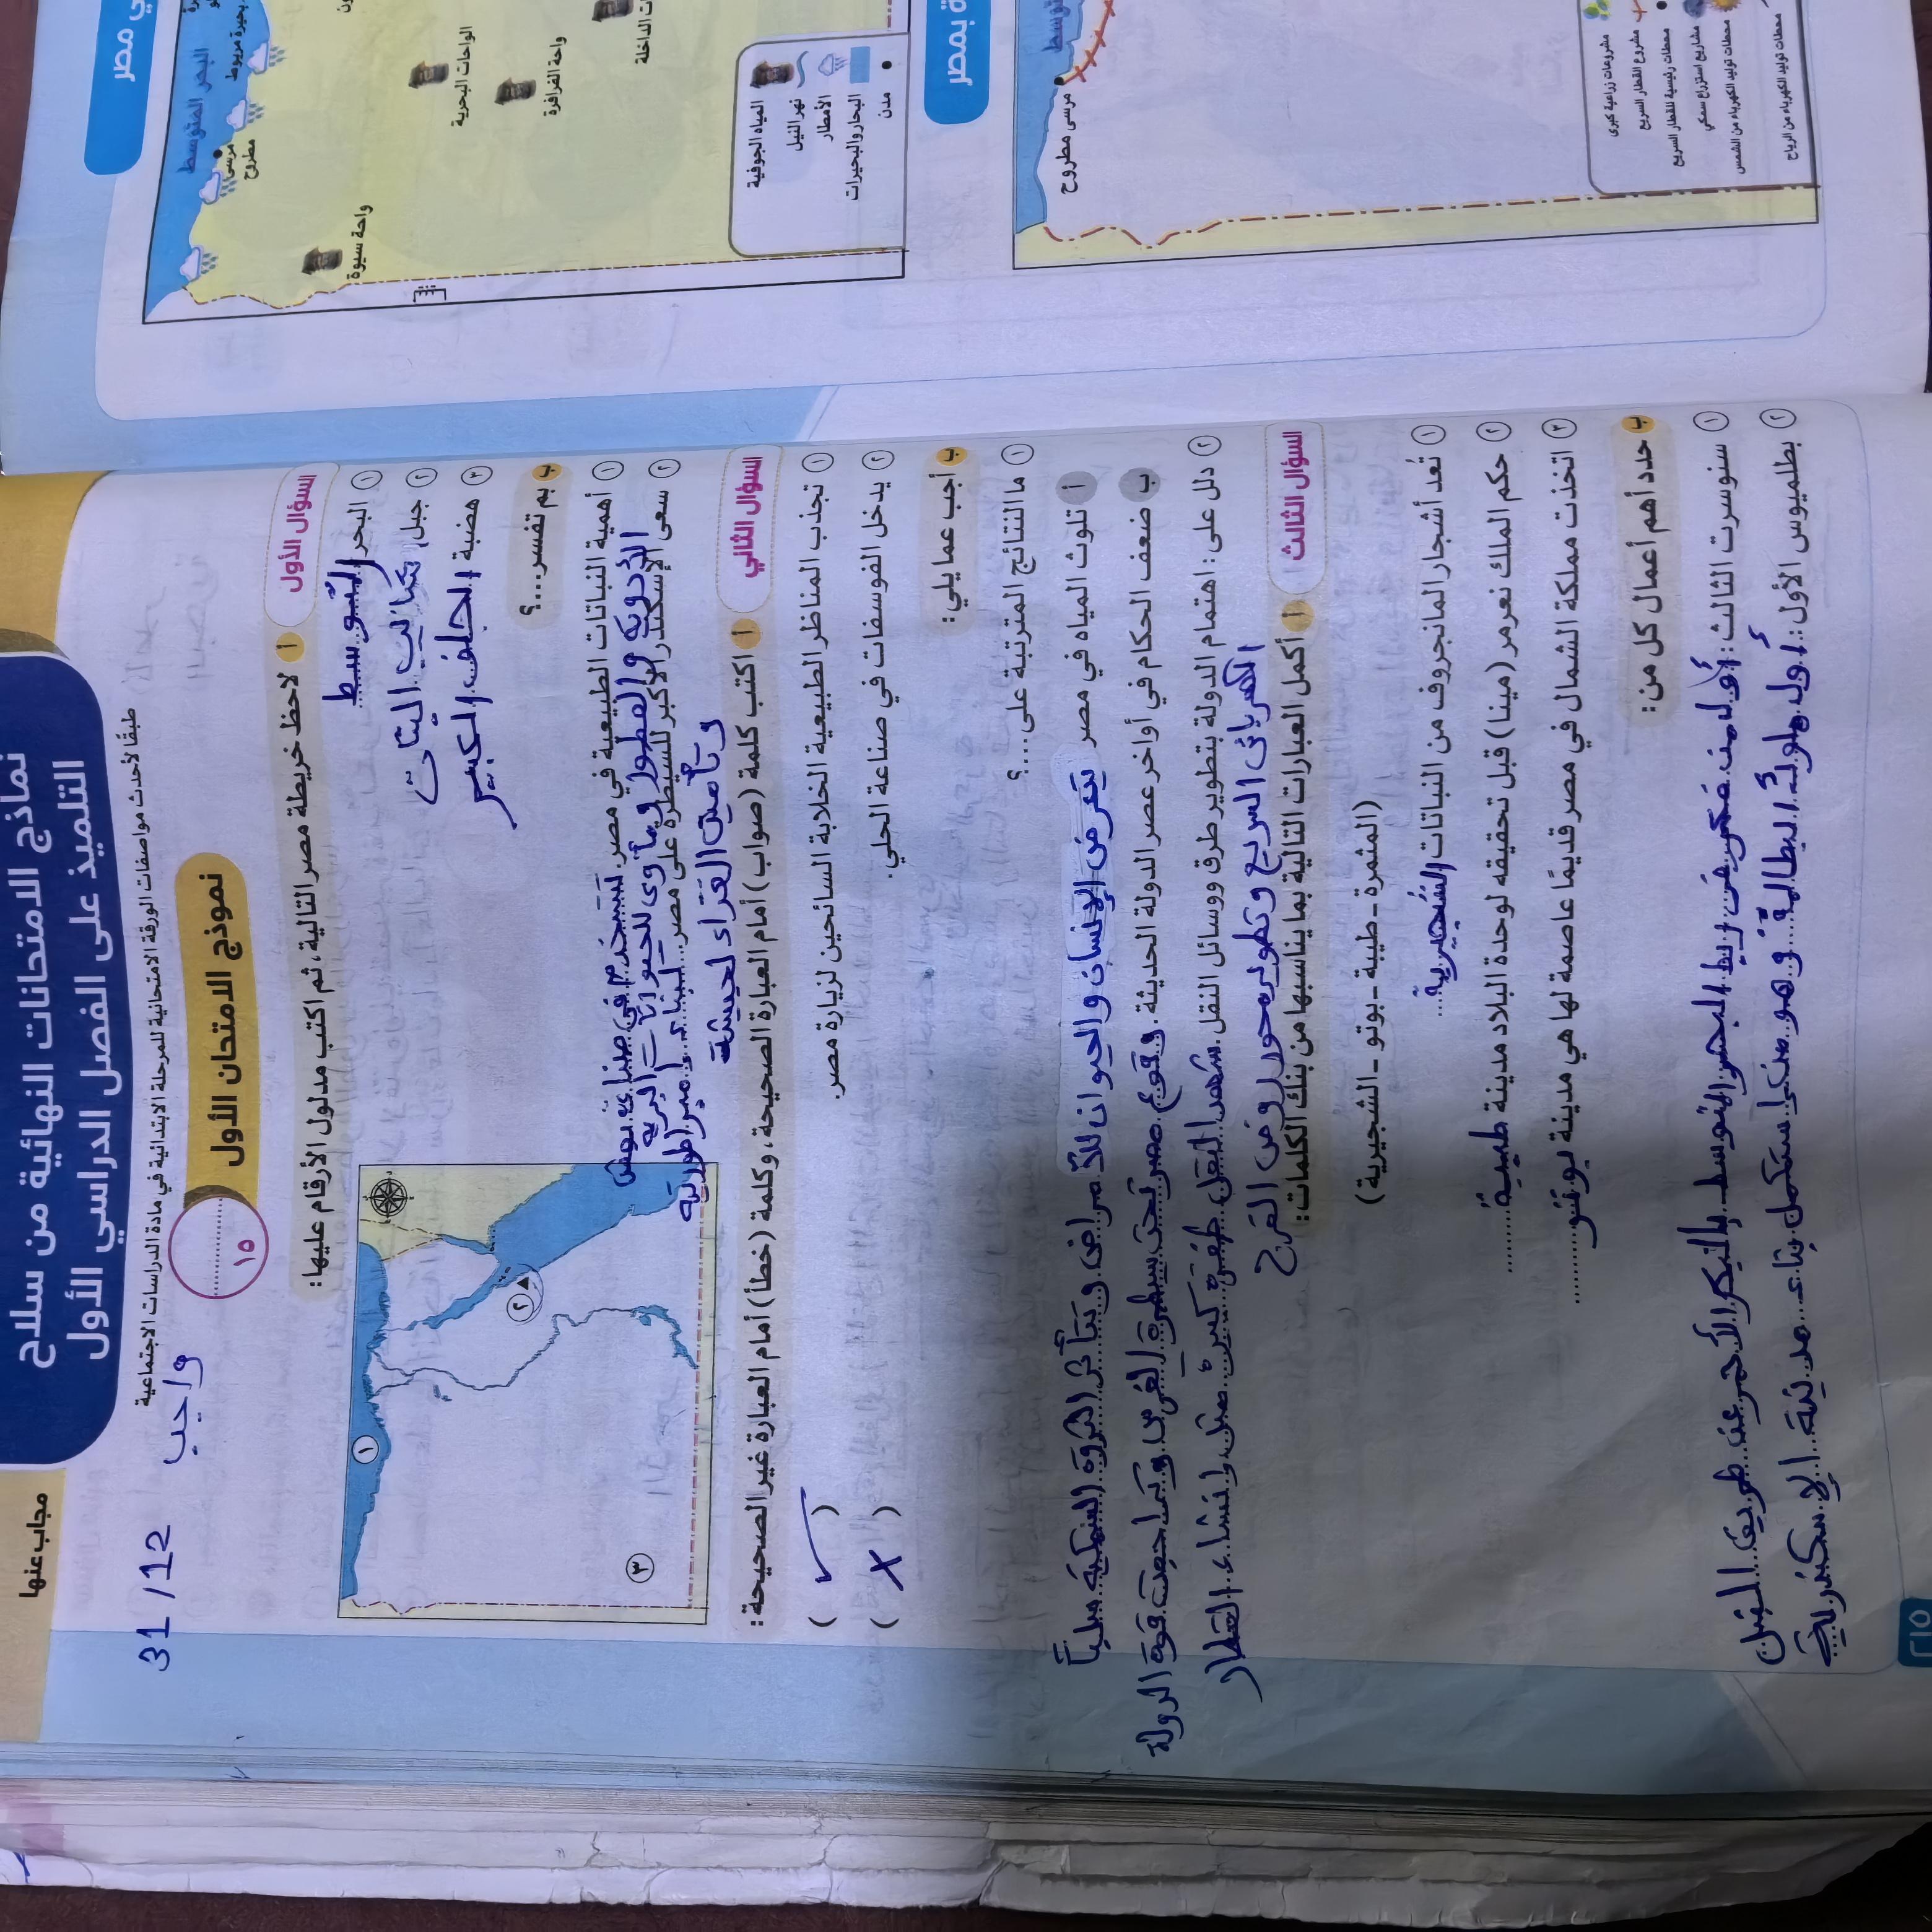 مجاب عنها
نماذج الامتحانات النهائية من سلاح
التلميذ على الفصل الدراسي الأول
طبقًا لأحدث مواصفات الورقة الامتحانية للمرحلة الابتدائية في مادة الدراسات الاجتماعية
31/12
واجب
نموذج الامتحان الأول
١٥
السؤال الأول
أ لاحظ خريطة مصر التالية، ثم اكتب مدلول الأرقام عليها:
١ البحر المتوسط
٢ جبل كاترين
٣ هضبة الجلف الكبير
١
٢
٣
ب بم تفسر...؟
١ أهمية النباتات الطبيعية في مصر. تستخدم في صناعة بعض
الأدوية والعطور ومأوى للحيوانات البرية
٢ سعى الإسكندر الأكبر للسيطرة على مصر. لبناء إمبراطورية
وتأمين الغذاء لجيشه
السؤال الثاني
أ اكتب كلمة (صواب) أمام العبارة الصحيحة، وكلمة (خطأ) أمام العبارة غير الصحيحة:
١ تجذب المناظر الطبيعية الخلابة السائحين لزيارة مصر. (✓)
٢ يدخل الفوسفات في صناعة الحلي. (✗)
ب أجب عما يلي:
١ ما النتائج المترتبة على...؟
أ تلوث المياه في مصر تعرض الإنسان والحيوان للأمراض وتتأثر الثروة السمكية سلبياً
ب ضعف الحكام في أواخر عصر الدولة الحديثة. وقوع مصر تحت سيطرة الفرس قوة الدولة
٢ دلل على: اهتمام الدولة بتطوير طرق ووسائل النقل. شهد النقل طفرة كبيرة مثل إنشاء القطار
الكهربائى السريع وتطوير محور روض الفرج
السؤال الثالث
أ أكمل العبارات التالية بما يناسبها من بنك الكلمات:
(المثمرة - طيبة - بوتو - الشجيرية)
١ تُعد أشجار المانجروف من النباتات الشجيرية
٢ حكم الملك نعرمر (مينا) قبل تحقيقه لوحدة البلاد مدينة طيبة
٣ اتخذت مملكة الشمال في مصر قديمًا عاصمة لها هي مدينة بوتو
ب حدد أهم أعمال كل من:
١ سنوسرت الثالث: أول من فكر في ربط البحر المتوسط بالبحر الأحمر عن طريق النيل
٢ بطلميوس الأول: أول ملوك البطالمة وهو من استكمل بناء مدينة الإسكندرية
٢١٥
ي مصر
البحر المتوسط
بحيرة مريوط
مرسى
مطروح
واحة سيوة
الواحات البحرية
واحة الفرافرة
المياه الجوفية
نهر النيل
الأمطار
البحار والبحيرات
مدن
ة بمصر
مرسى مطروح
مشروعات زراعية كبرى
مشروع القطار السريع
محطات رئيسية للقطار السريع
مشاريع استزراع سمكي
محطات توليد الكهرباء من الشمس
محطات توليد الكهرباء من الرياح